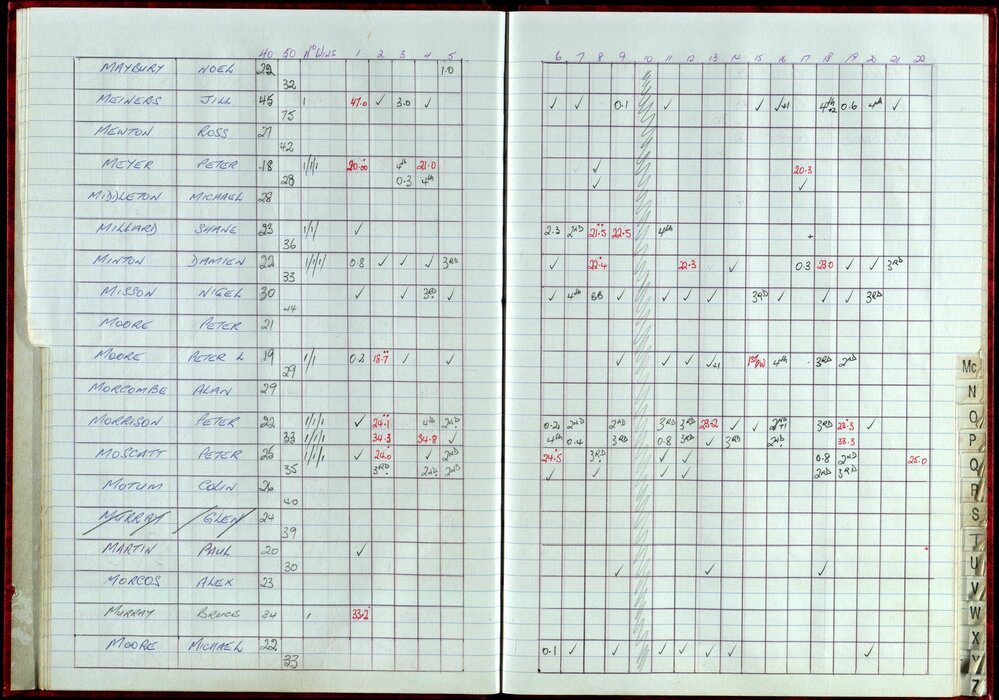 40 50 No Wins 1 2 3 4 5 6 7 8 9 10 11 12 13 14 15 16 17 18 19 20 21 22
MAYBURY NOEL 22 1.0
32
MEINERS JILL 45 1 47.0 ✓ 3.0 ✓ ✓ ✓ 0.1 ✓ ✓ ✓+1 4th+2 0.6 4th ✓
75
MEWTON ROSS 27
42
MEYER PETER 18 20.00 4th 21.0 ✓ 20.3
28 0.3 4th ✓ ✓
MIDDLETON MICHAEL 28
MILLARD SHANE 23 ✓ 2.3 2ND 21.5 22.5 4th +
36
MINTON DAMIEN 22 0.8 ✓ ✓ ✓ 3RD ✓ 22.4 22.3 ✓ 0.3 23.0 ✓ ✓ 3RD
33
MISSON NIGEL 30 ✓ ✓ 3RD ✓ ✓ 4th BB ✓ ✓ ✓ ✓ 3RD ✓ ✓ ✓ 3RD
44
MOORE PETER 21
MOORE PETER L 19 0.2 18.7 ✓ ✓ ✓ ✓ ✓ ✓+1 4th 3RD 2ND
29
MORCOMBE ALAN 29
MORRISON PETER 22 ✓ 24.1 4th 2ND 0.2 2ND 2ND 3RD 3RD 23.2 ✓ ✓ 2ND+1 3RD 23.3 ✓
33 34.3 34.8 ✓ 4th 0.4 3RD 0.8 3RD ✓ 3RD 2ND 33.3
MOSCATT PETER 25 ✓ 24.0 ✓ 2ND 24.5 3RD ✓ ✓ 0.8 2ND 25.0
35 3RD 2ND 2ND ✓ ✓ ✓ ✓ 2ND 3RD
MOTUM COLIN 26
40
MURRAY GLEN 24
39
MARTIN PAUL 20 ✓
30 ✓ ✓ ✓
MORCOS ALEX 23
MURRAY BRUCE 34 1 33.2
MOORE MICHAEL 22 0.1 ✓ ✓ ✓ ✓ ✓ ✓ ✓
33
Mc
N
O
P
Q
R
S
T
U
V
W
X
Y
Z